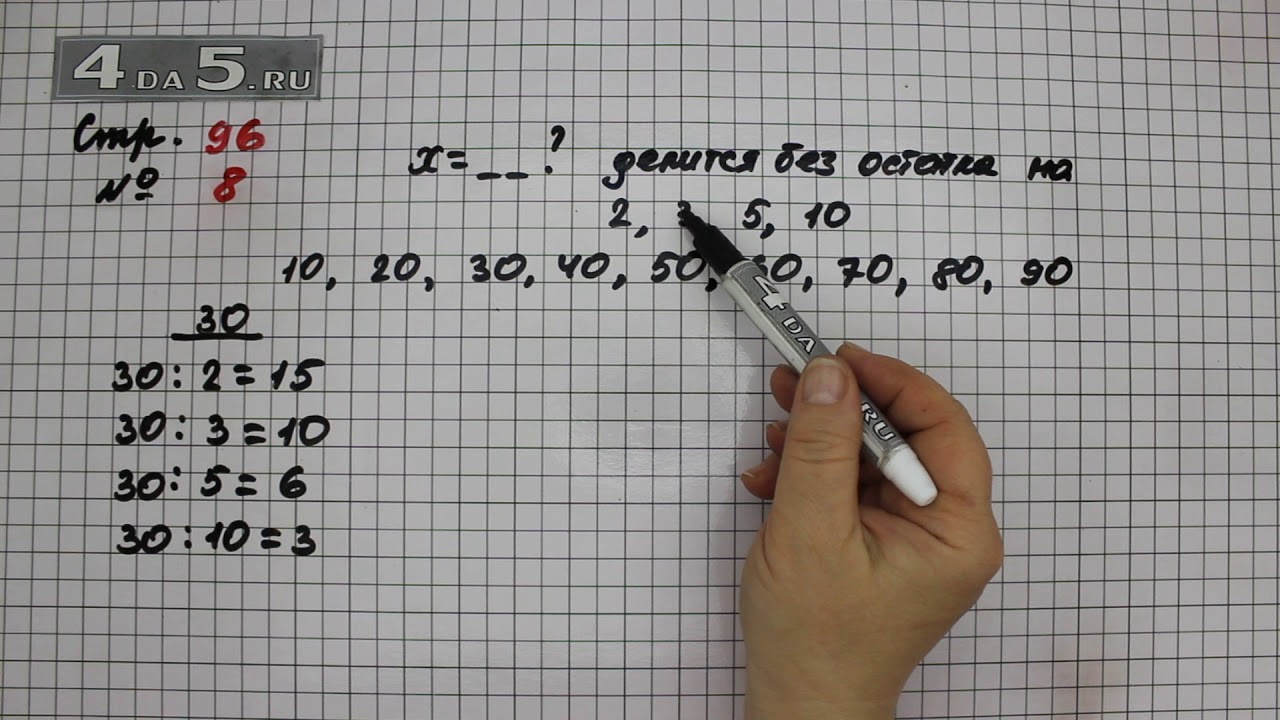 4DA5.RU
Стр. 96
№ 8
х=__? делится без остатка на
2, 3 5, 10
10, 20, 30, 40, 50, 60, 70, 80, 90
30
30:2=15
30:3=10
30:5=6
30:10=3
4DA RU